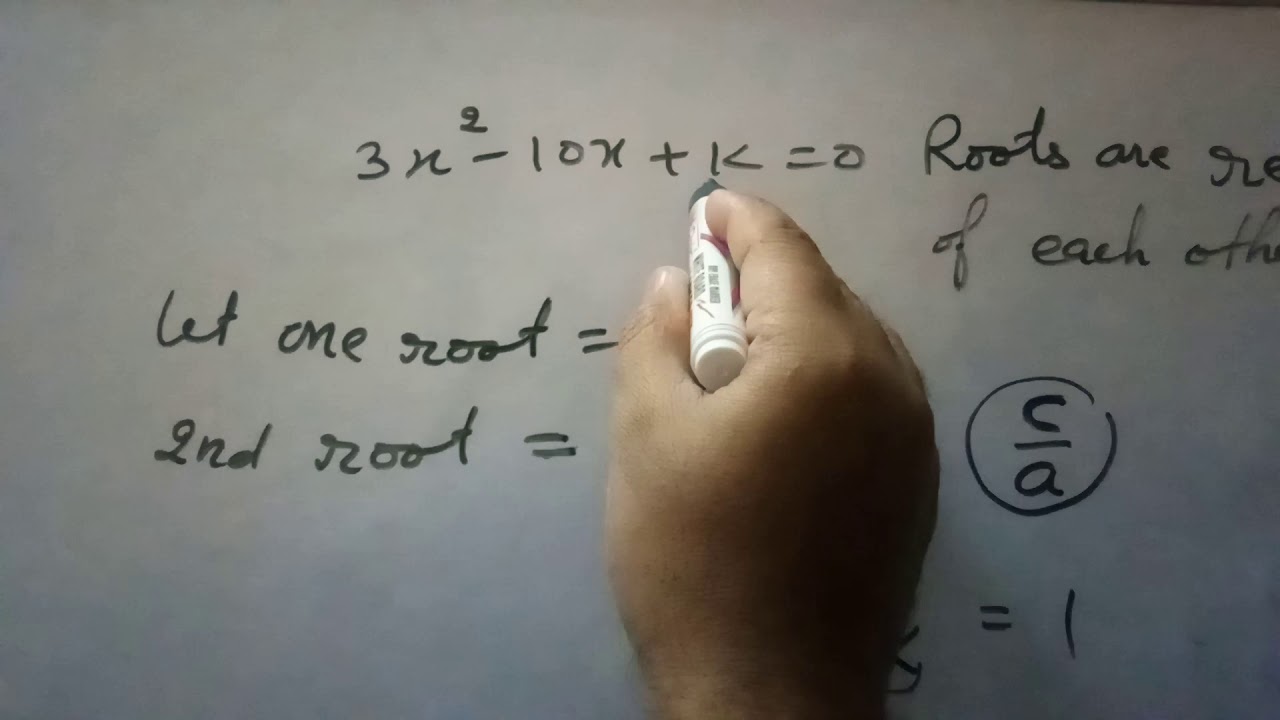 3x² - 10x + K = 0 Roots are re
of each othe
Let one root =
2nd root =
c
a
= 1